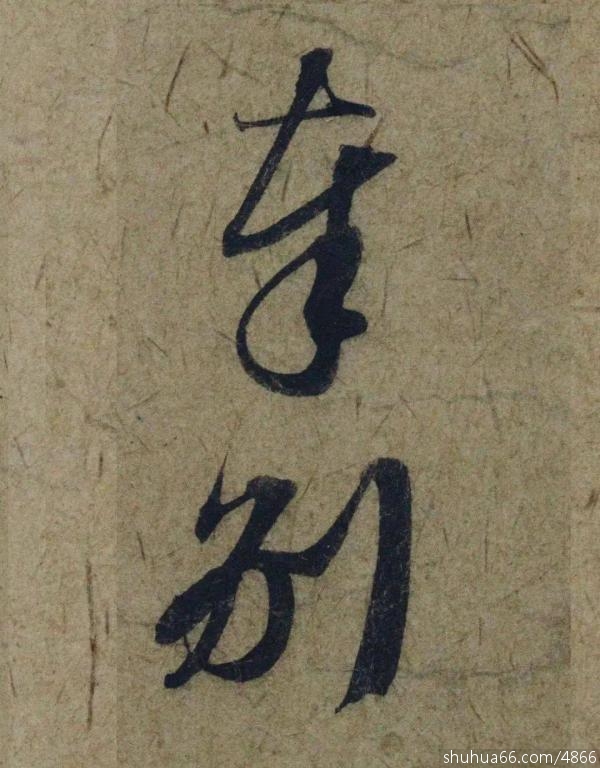 奉別
shuhua66.com/4866